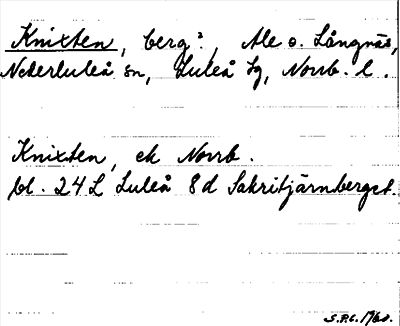 Knixten, berg?, Ale o. Långnäs,
Nederluleå sn, Luleå tg, Norrb. l.
Knixten, ek Norrb.
bl. 24 L Luleå 8d Sakritjärnberget.
S.P.E. 1960.